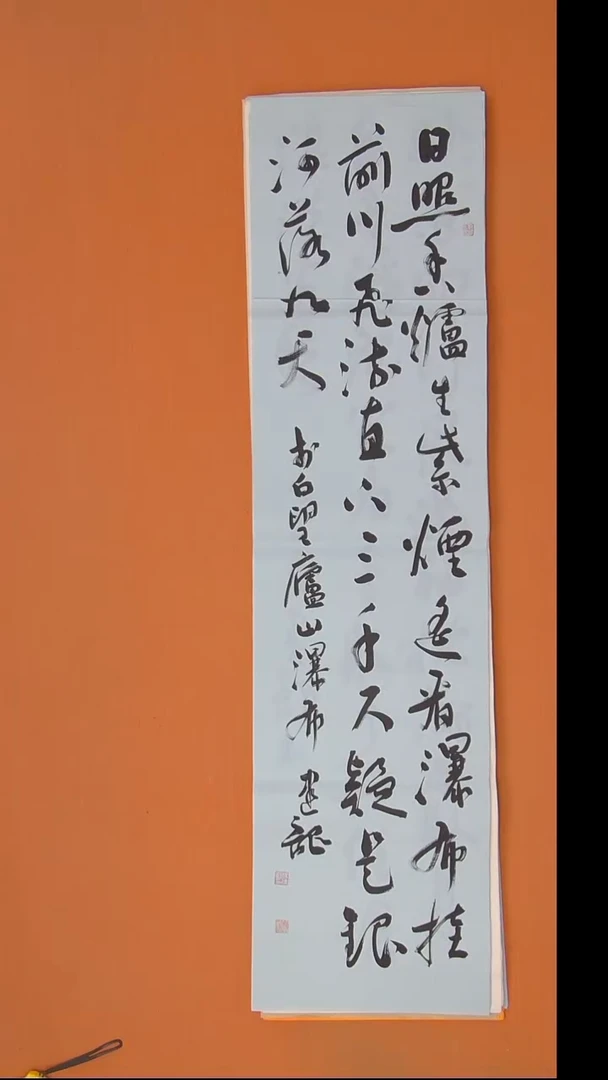 日照香爐生紫煙遙看瀑布挂
前川飛流直下三千尺疑是銀
河落九天 李白望廬山瀑布